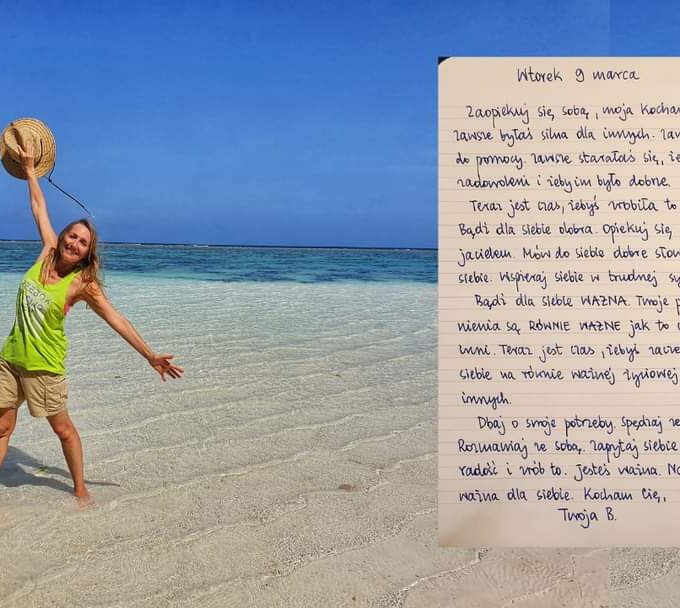 Wtorek 9 marca
Zaopiekuj się sobą, moja Kochan
Zawsze byłaś silna dla innych. Zaw
do pomocy. Zawsze starałaś się, że
zadowoleni i żeby im było dobrze.
Teraz jest czas, żebyś zrobiła to
Bądź dla siebie dobra. Opiekuj się,
jacielem. Mów do siebie dobre słow
siebie. Wspieraj siebie w trudnej sy
Bądź dla siebie WAŻNA. Twoje p
nienia są RÓWNIE WAŻNE jak to
inni. Teraz jest czas, żebyś zacz
siebie na równie ważnej życiowej
innych.
Dbaj o swoje potrzeby. Spędzaj
Rozmawiaj ze sobą. Zapytaj siebie
radość i zrób to. Jesteś ważna. Na
ważna dla siebie. Kocham Cię,
Twoja B.